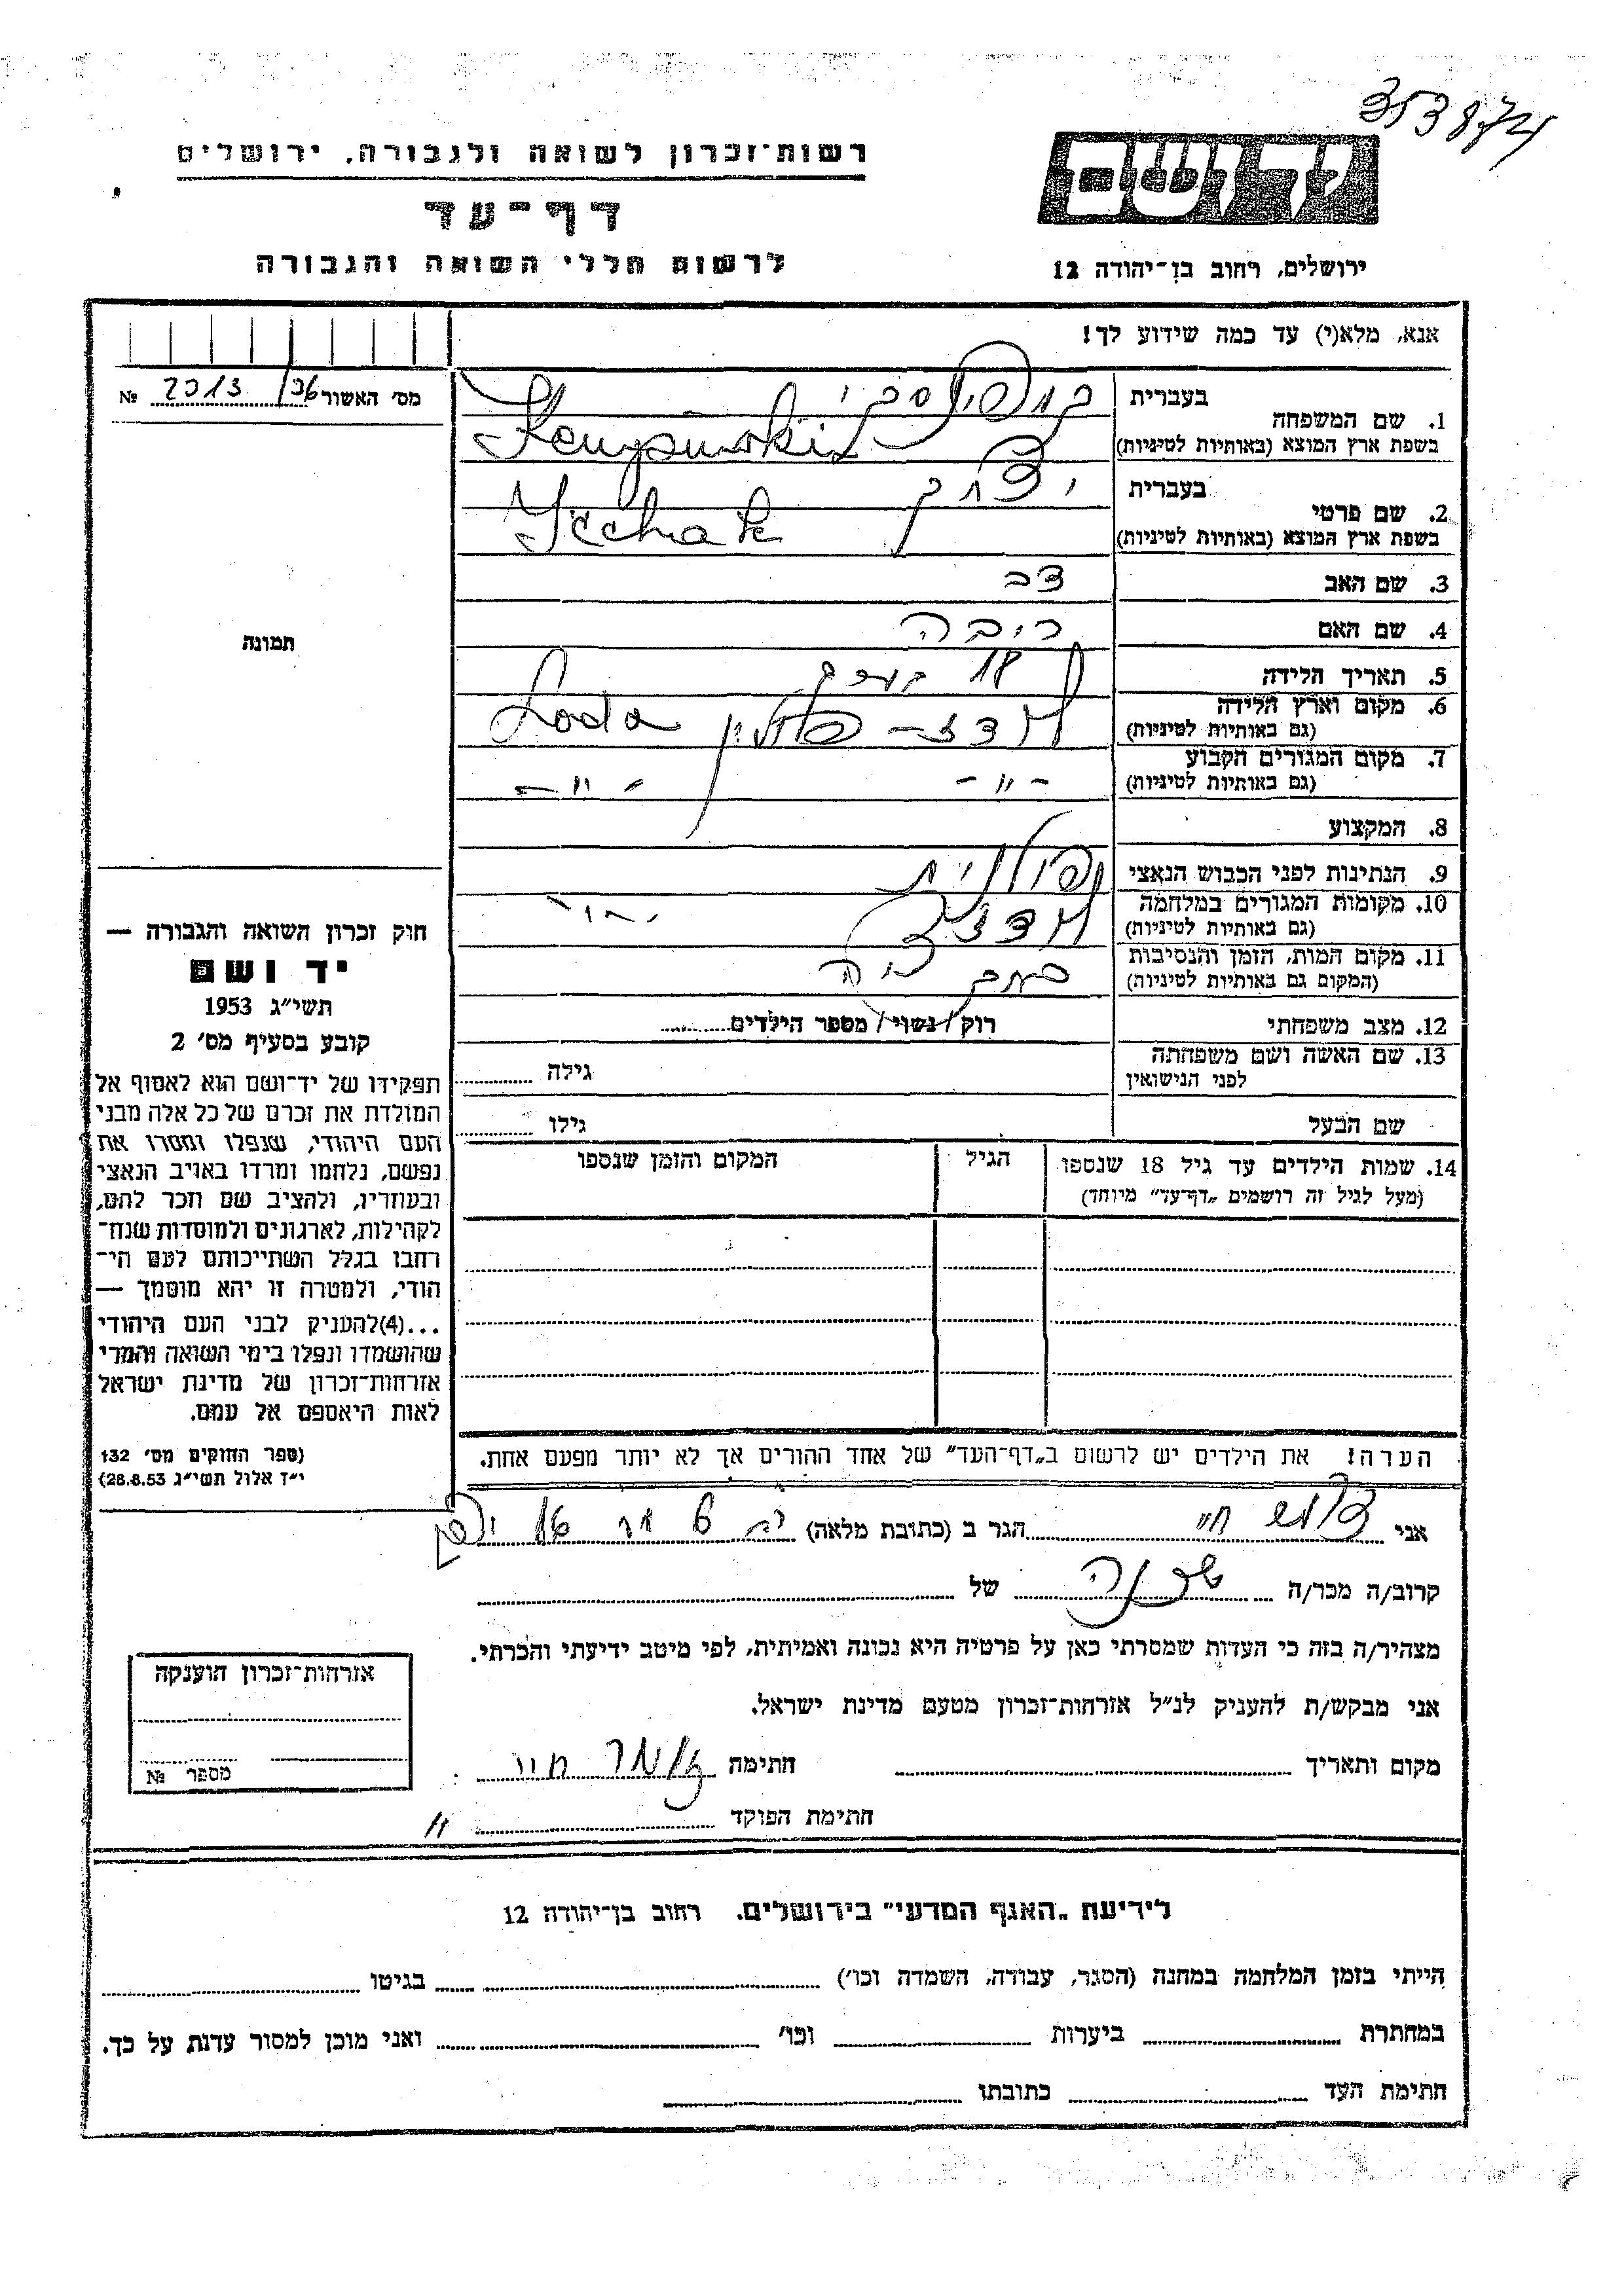 353874
רשות־זכרון לשואה ולגבורה, ירושלים
ידושם
דף־עד
לרשום חללי השואה והגבורה
ירושלים, רחוב בן־יהודה 12
אנא, מלא(י) עד כמה שידוע לך!
מס׳ האשור 36/ 2013 №
1. שם המשפחה
בעברית
בשפת ארץ המוצא (באותיות לטיניות)
2. שם פרטי
בעברית יצחק
בשפת ארץ המוצא (באותיות לטיניות) Icchak
3. שם האב
4. שם האם
5. תאריך הלידה 18
6. מקום וארץ הלידה
(גם באותיות לטיניות) לודז - פולין
7. מקום המגורים הקבוע
(גם באותיות לטיניות) -"- -"-
8. המקצוע
9. הנתינות לפני הכבוש הנאצי פולנית
10. מקומות המגורים במלחמה
(גם באותיות לטיניות) לודז -"-
11. מקום המות, הזמן והנסיבות
(המקום גם באותיות לטיניות)
12. מצב משפחתי רוק / נשוי / מספר הילדים
13. שם האשה ושם משפחתה
לפני הנישואין גילה
שם הבעל גילו
14. שמות הילדים עד גיל 18 שנספו הגיל המקום והזמן שנספו
(מעל לגיל זה רושמים „דף־עד״ מיוחד)
הערה! את הילדים יש לרשום ב„דף־העד״ של אחד ההורים אך לא יותר מפעם אחת.
תמונה
חוק זכרון השואה והגבורה —
יד ושם
תשי״ג 1953
קובע בסעיף מס׳ 2
תפקידו של יד־ושם הוא לאסוף אל
המולדת את זכרם של כל אלה מבני
העם היהודי, שנפלו ומסרו את
נפשם, נלחמו ומרדו באויב הנאצי
ובעוזריו, ולהציב שם וזכר להם,
לקהילות, לארגונים ולמוסדות שנח־
רבו בגלל השתייכותם לעם הי־
הודי, ולמטרה זו יהא מוסמך —
...(4)להעניק לבני העם היהודי
שהושמדו ונפלו בימי השואה והמרי
אזרחות־זכרון של מדינת ישראל
לאות היאספם אל עמם.
(ספר החוקים מס׳ 132
י״ז אלול תשי״ג 28.8.53)
אני הגר ב (כתובת מלאה)
קרוב/ה מכר/ה של
מצהיר/ה בזה כי העדות שמסרתי כאן על פרטיה היא נכונה ואמיתית, לפי מיטב ידיעתי והכרתי.
אני מבקש/ת להעניק לנ״ל אזרחות־זכרון מטעם מדינת ישראל.
מקום ותאריך חתימה
חתימת הפוקד
אזרחות־זכרון הוענקה
מספר №
לידיעת „האגף המדעי״ בירושלים. רחוב בן־יהודה 12
הייתי בזמן המלחמה במחנה (הסגר, עבודה, השמדה וכו׳) בגיטו
במחתרת ביערות וכו׳ ואני מוכן למסור עדות על כך.
חתימת העד כתובתו